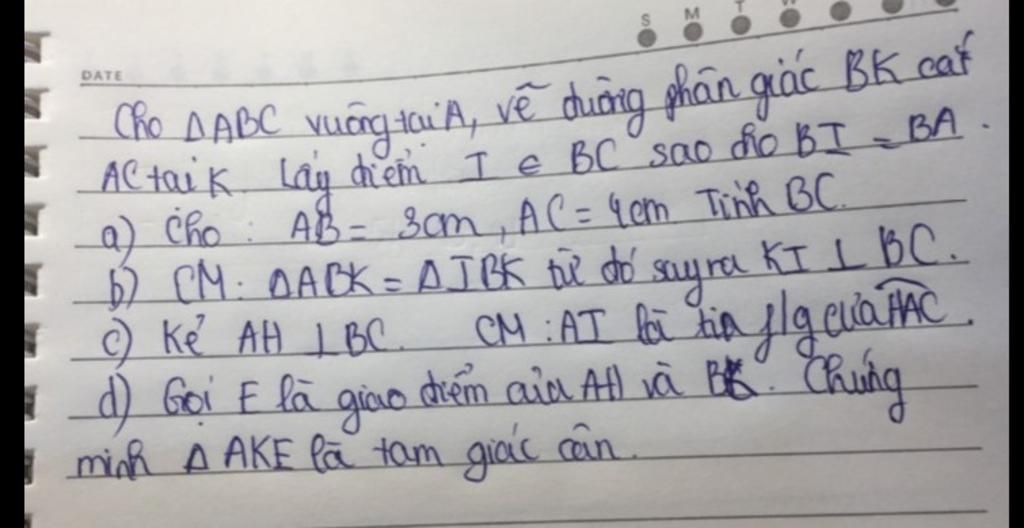 S M T W
DATE
Cho ΔABC vuông tại A, vẽ đường phân giác BK cắt
AC tại K Lấy điểm I ∈ BC sao cho BI = BA.
a) Cho: AB = 3cm, AC = 4cm Tính BC.
b) CM: ΔABK = ΔIBK từ đó suy ra KI ⊥ BC.
c) Kẻ AH ⊥ BC. CM: AI là tia f/g của HAC.
d) Gọi E là giao điểm của AH và BK. Chứng
minh Δ AKE là tam giác cân.